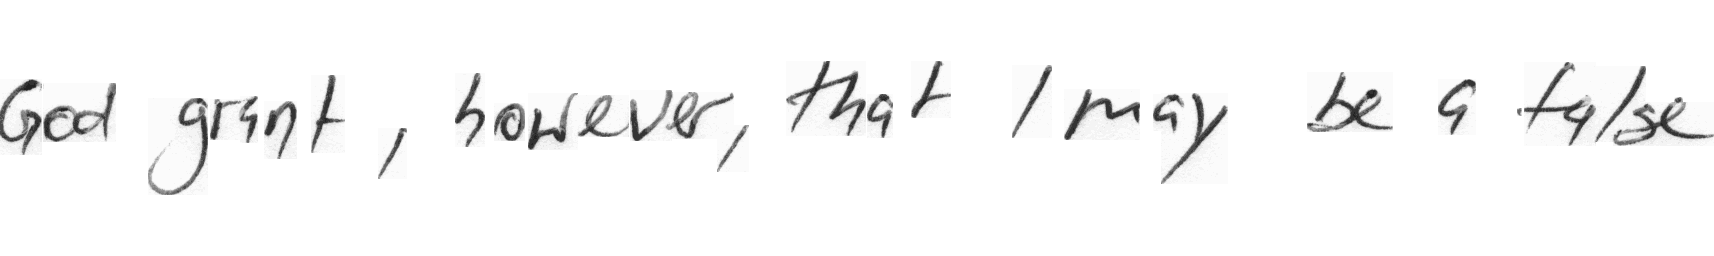 God grant, however, that I may be a false